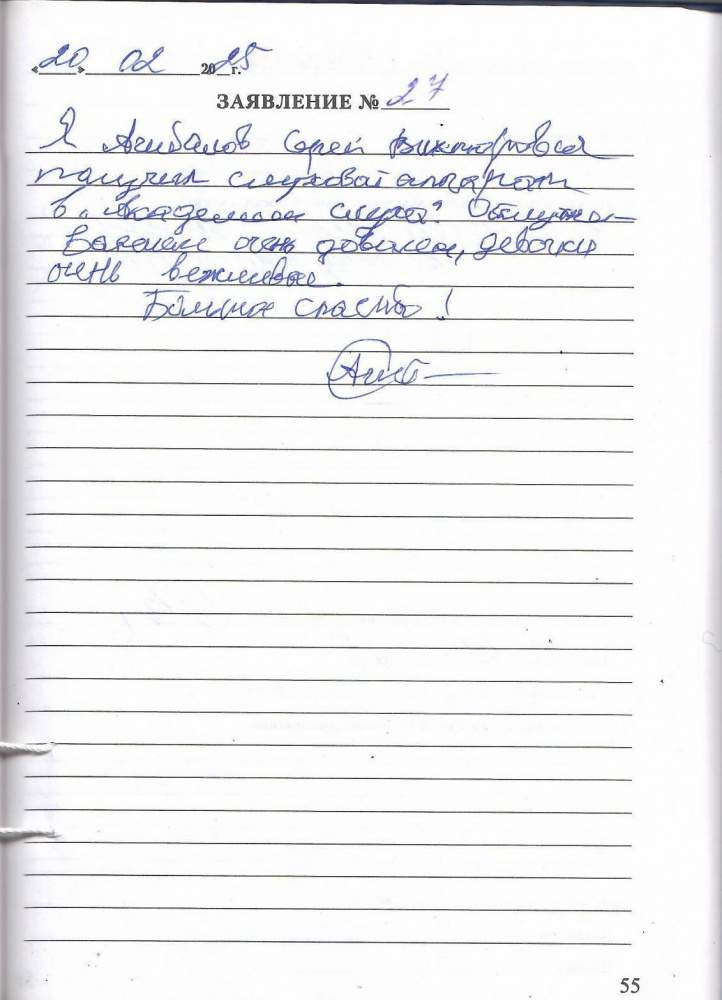 «20» 02 2025 г.
ЗАЯВЛЕНИЕ № 27
Я Агибалов Сергей Викторович
получил слуховой аппарат
в „Академии слуха“. Обслужи-
ванием очень доволен, девочки
очень вежливые.
Большое спасибо!
55